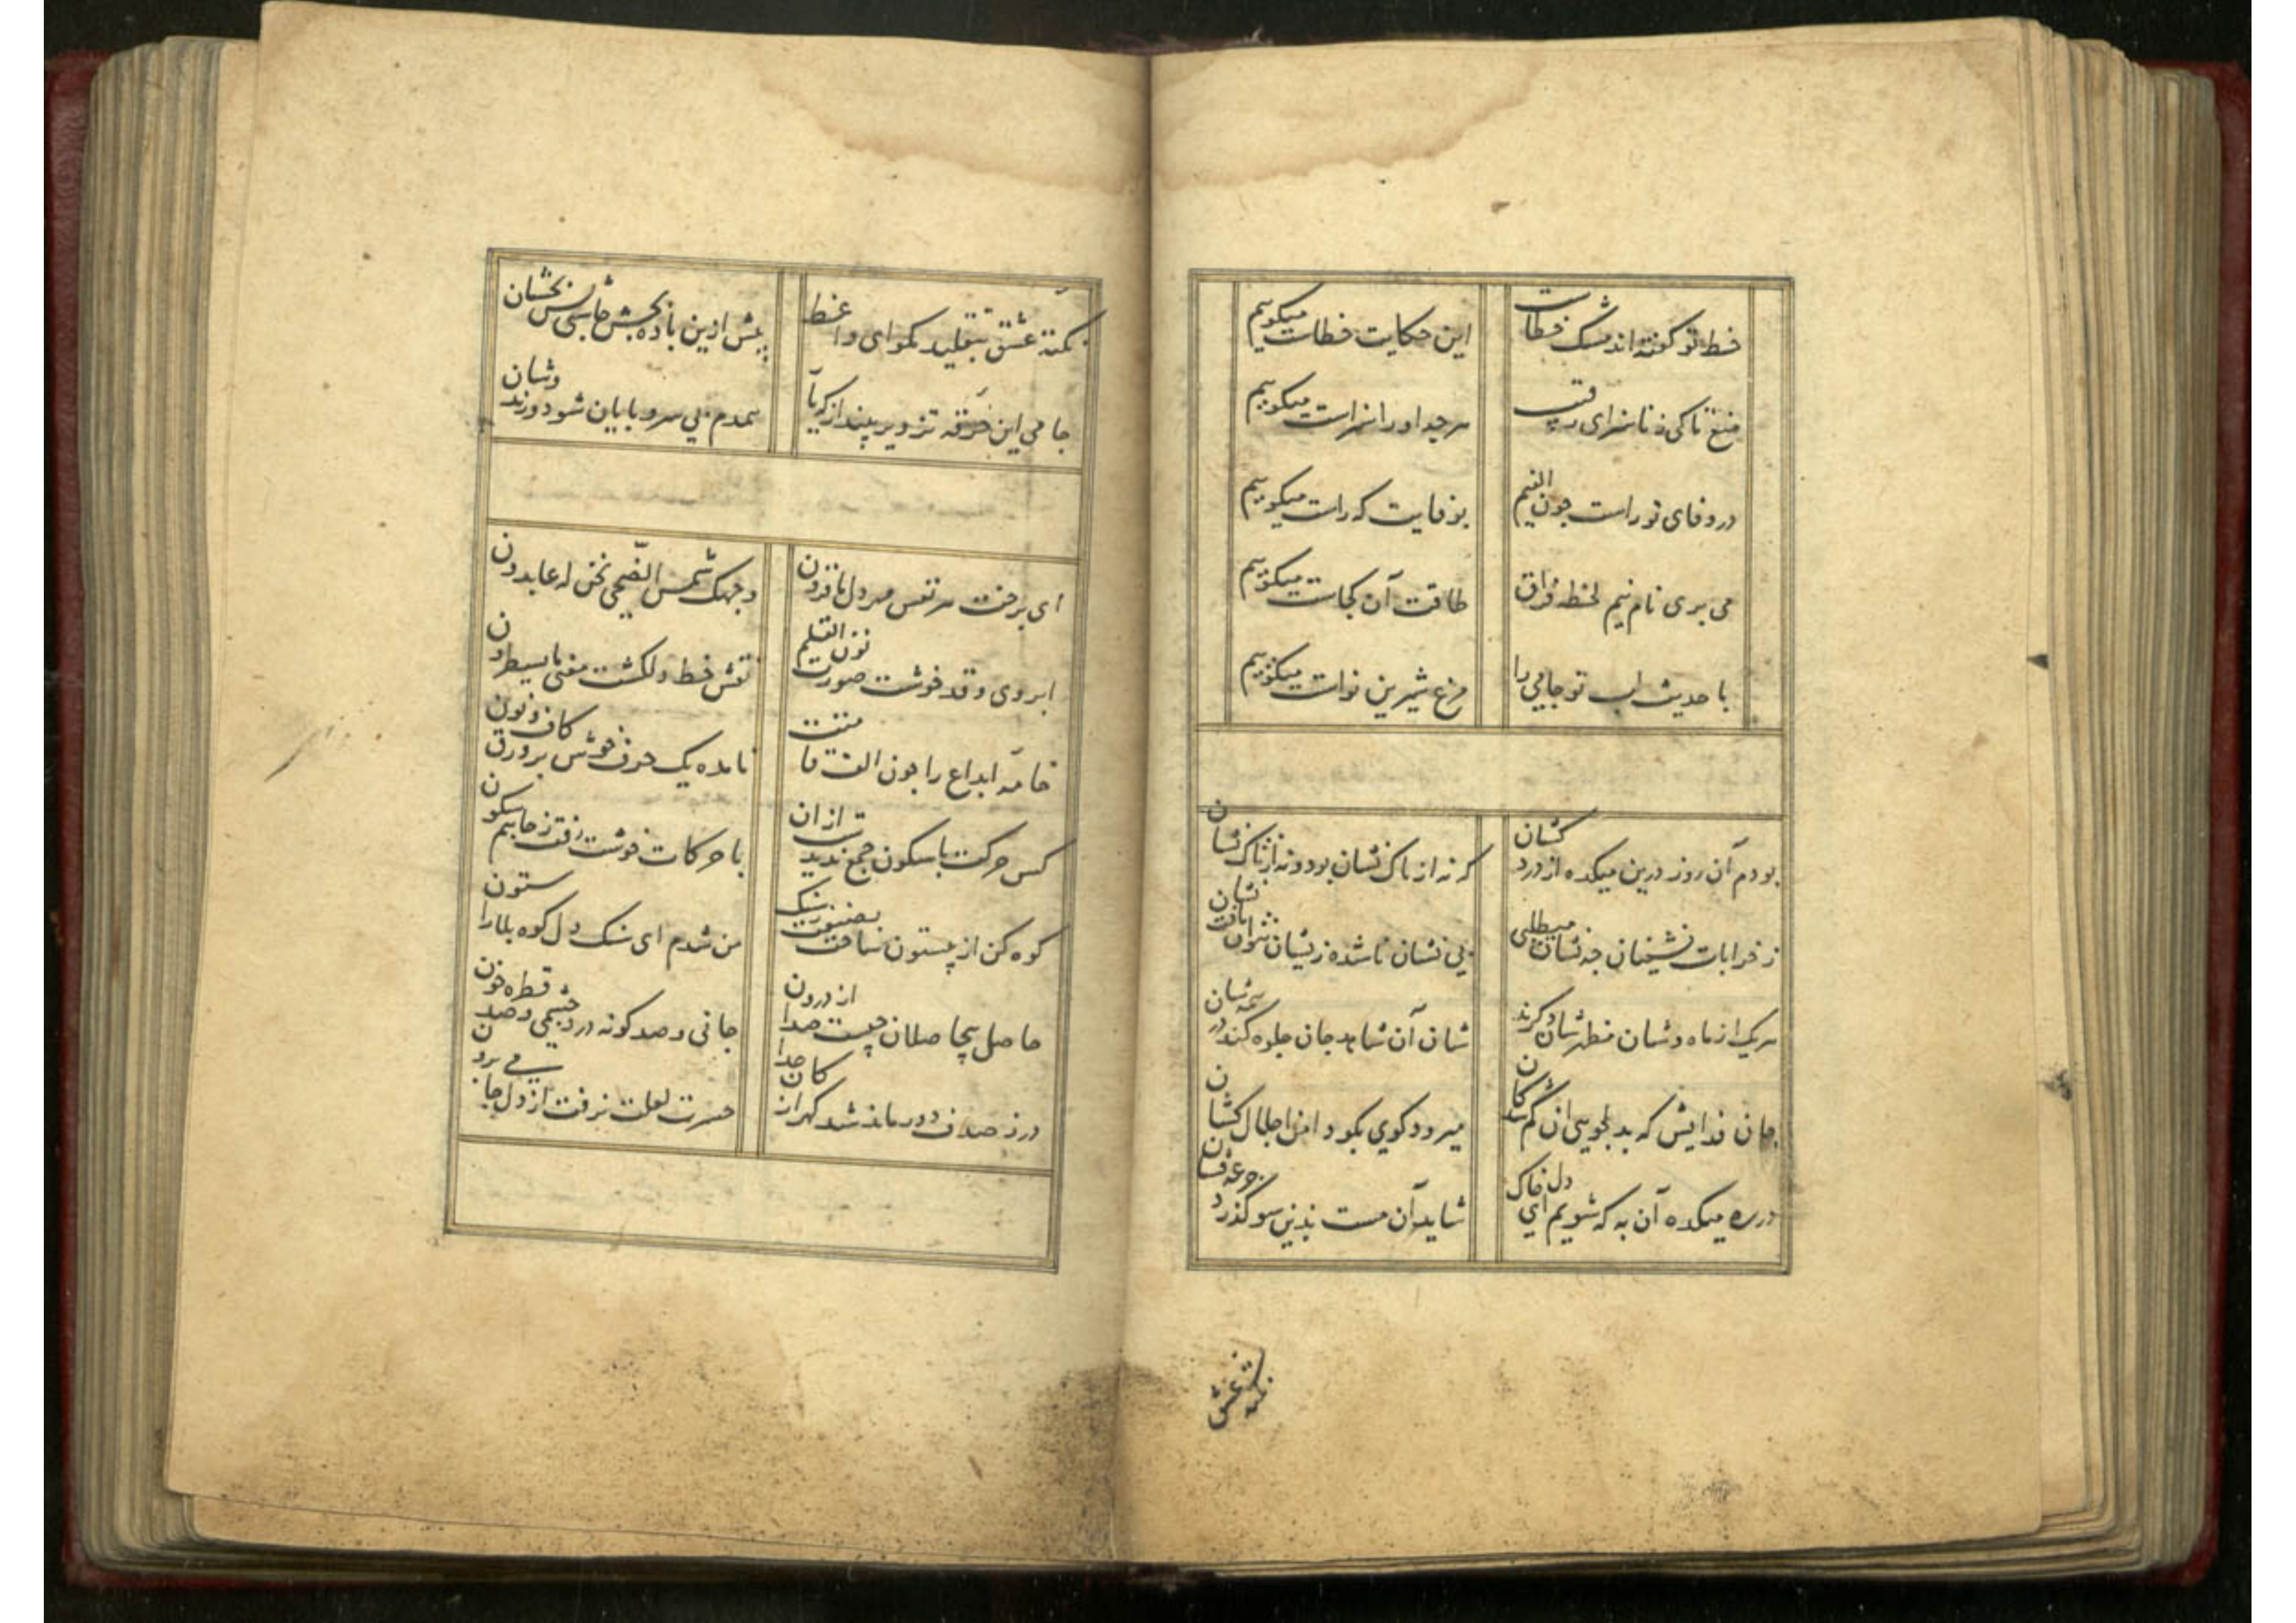 خط تو گفته‌اند مشک خطاست این حکایت خطاست میگویم
منع تا کی ز ناسزای رقیب هر چه او را سزاست میگویم
در وفای تو راست چون الفیم بوفایت که راست میگویم
می بری نام نیم لحظه فراق طاقت آن کجاست میگویم
با حدیث لب تو جامی را مرغ شیرین نواست میگویم
بودم آن روز درین میکده از دردکشان که نه از تاک نشان بود و نه از تاک نشان
ز خرابات نشینان چه نشان میطلبی بی نشان ناشده زیشان نتوان یافت نشان
هر یک از ماه وشان مظهر شان دگرند شان آن شاهد جان جلوه گری در همه شان
جان فدایش که بدلجویی ان گمشدکان میرود کوی بکو دامن اجلال کشان
در ره میکده آن به که شویم ای دل خاک شاید آن مست بدین سو گذرد جرعه فشان
نکته عشق
نکته عشق بتقلید مکو ای واعظ پیش ازین باده بچش چاشنی بخشان
جامی این خرقه تزویر بینداز که یار همدم بی سر و پایان شود و رند وشان
ای برخت هر نفس مهر دل ما فزون وجهک شمس الضحی نحن له عابدون
ابروی و قد خوشت صورت نون القلم نقش خط دلکشت معنی ما یسطرون
خامه ابداع را چون الف قامتت نامده یک حرف خوش بر ورق کاف و نون
کس حرکت با سکون جمع ندیدست ازان با حرکات خوشت رفت ز جانم سکون
کوه کن از بیستون ساخت بصنعت سنک من شدم ای سنک دل کوه بلا را ستون
حاصل بیحاصلان چیست جدا از درون جانی و صد گونه درد چشمی و صد قطره خون
در ز صدف دور ماند شد گهر از کان جدا حسرت لعلت نرفت از دل جامی برون